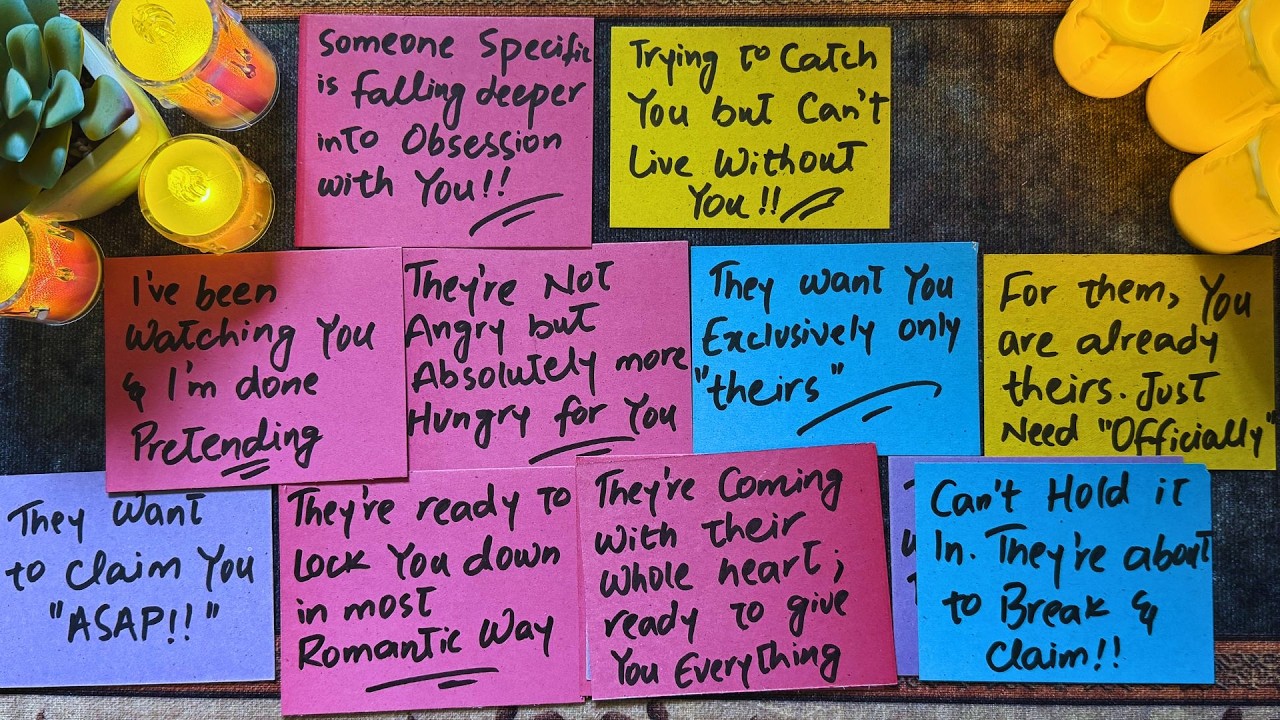 Someone Specific
is falling deeper
into Obsession
with You!!
Trying to Catch
You but Can't
Live Without
You!!
I've been
Watching You
& I'm done
Pretending
They're Not
Angry but
Absolutely more
Hungry for You
They want You
Exclusively only
"theirs"
For them, You
are already
theirs. Just
Need "Officially"
They Want
to claim You
"ASAP!!"
They're ready to
Lock You down
in most
Romantic Way
They're Coming
with their
whole heart;
ready to give
You Everything
Can't Hold it
In. They're about
to Break &
Claim!!